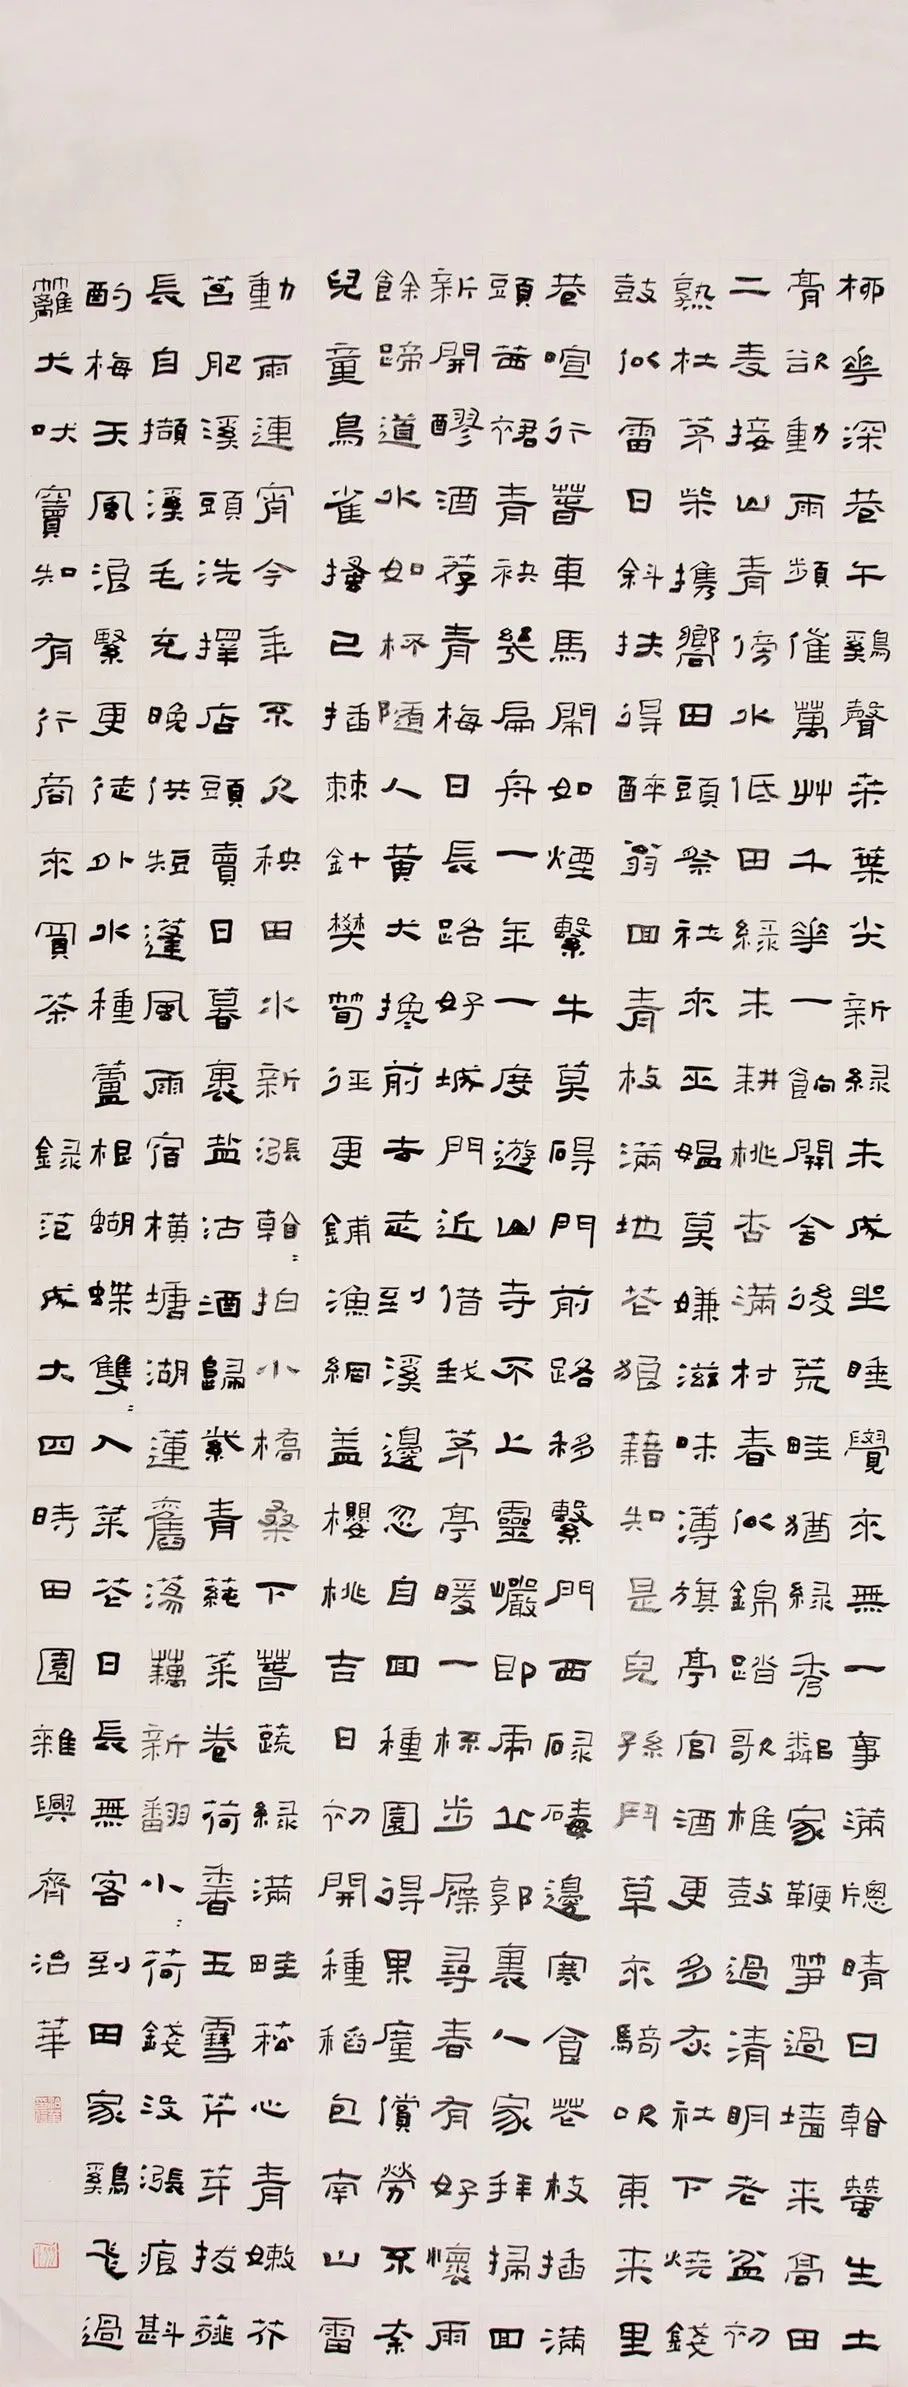 柳花深巷午鷄聲桑葉尖新綠未成坐睡覺來無一事滿牕晴日看蠶生土
膏欲動雨頻催萬艸千花一餉開舍後荒畦猶綠秀鄰家鞭筍過墻來高田
二麥接山青傍水低田綠未耕桃杏滿村春似錦踏歌椎鼓過清明老盆初
熟杜茅柴攜嚮田頭祭社來巫媼莫嫌滋味薄旗亭官酒更多灰社下燒錢
鼓似雷日斜扶得醉翁回青枝滿地花狼藉知是兒孫鬥草來騎吹東來里
巷喧行春車馬鬧如煙繫牛莫碍門前路移繫門西碌碡邊寒食花枝插滿
頭茜裙青袂幾扁舟一年一度遊山寺不上靈巖即虎丘郭裏人家拜掃回
新開醪酒荐青梅日長路好城門近借我茅亭暖一杯步屧尋春有好懷雨
餘蹄道水如杯隨人黃犬攙前去走到溪邊忽自回種園得果廑償勞不柰
兒童鳥雀搔已插棘針樊筍徑更鋪漁網蓋櫻桃吉日初開種稻包南山雷
動雨連宵今年不欠秧田水新漲看〻拍小橋桑下春蔬綠滿畦菘心青嫩芥
苔肥溪頭洗擇店頭賣日暮裹盐沽酒歸紫青蒓菜卷荷香玉雪芹芽拔薤
長自擷溪毛充晚供短蓬風雨宿橫塘湖蓮舊蕩藕新翻小〻荷錢沒漲痕斟
酌梅天風浪緊更從外水種蘆根蝴蝶雙〻入菜花日長無客到田家鷄飛過
籬犬吠竇知有行商來買茶 録范成大四時田園雜興齊治華